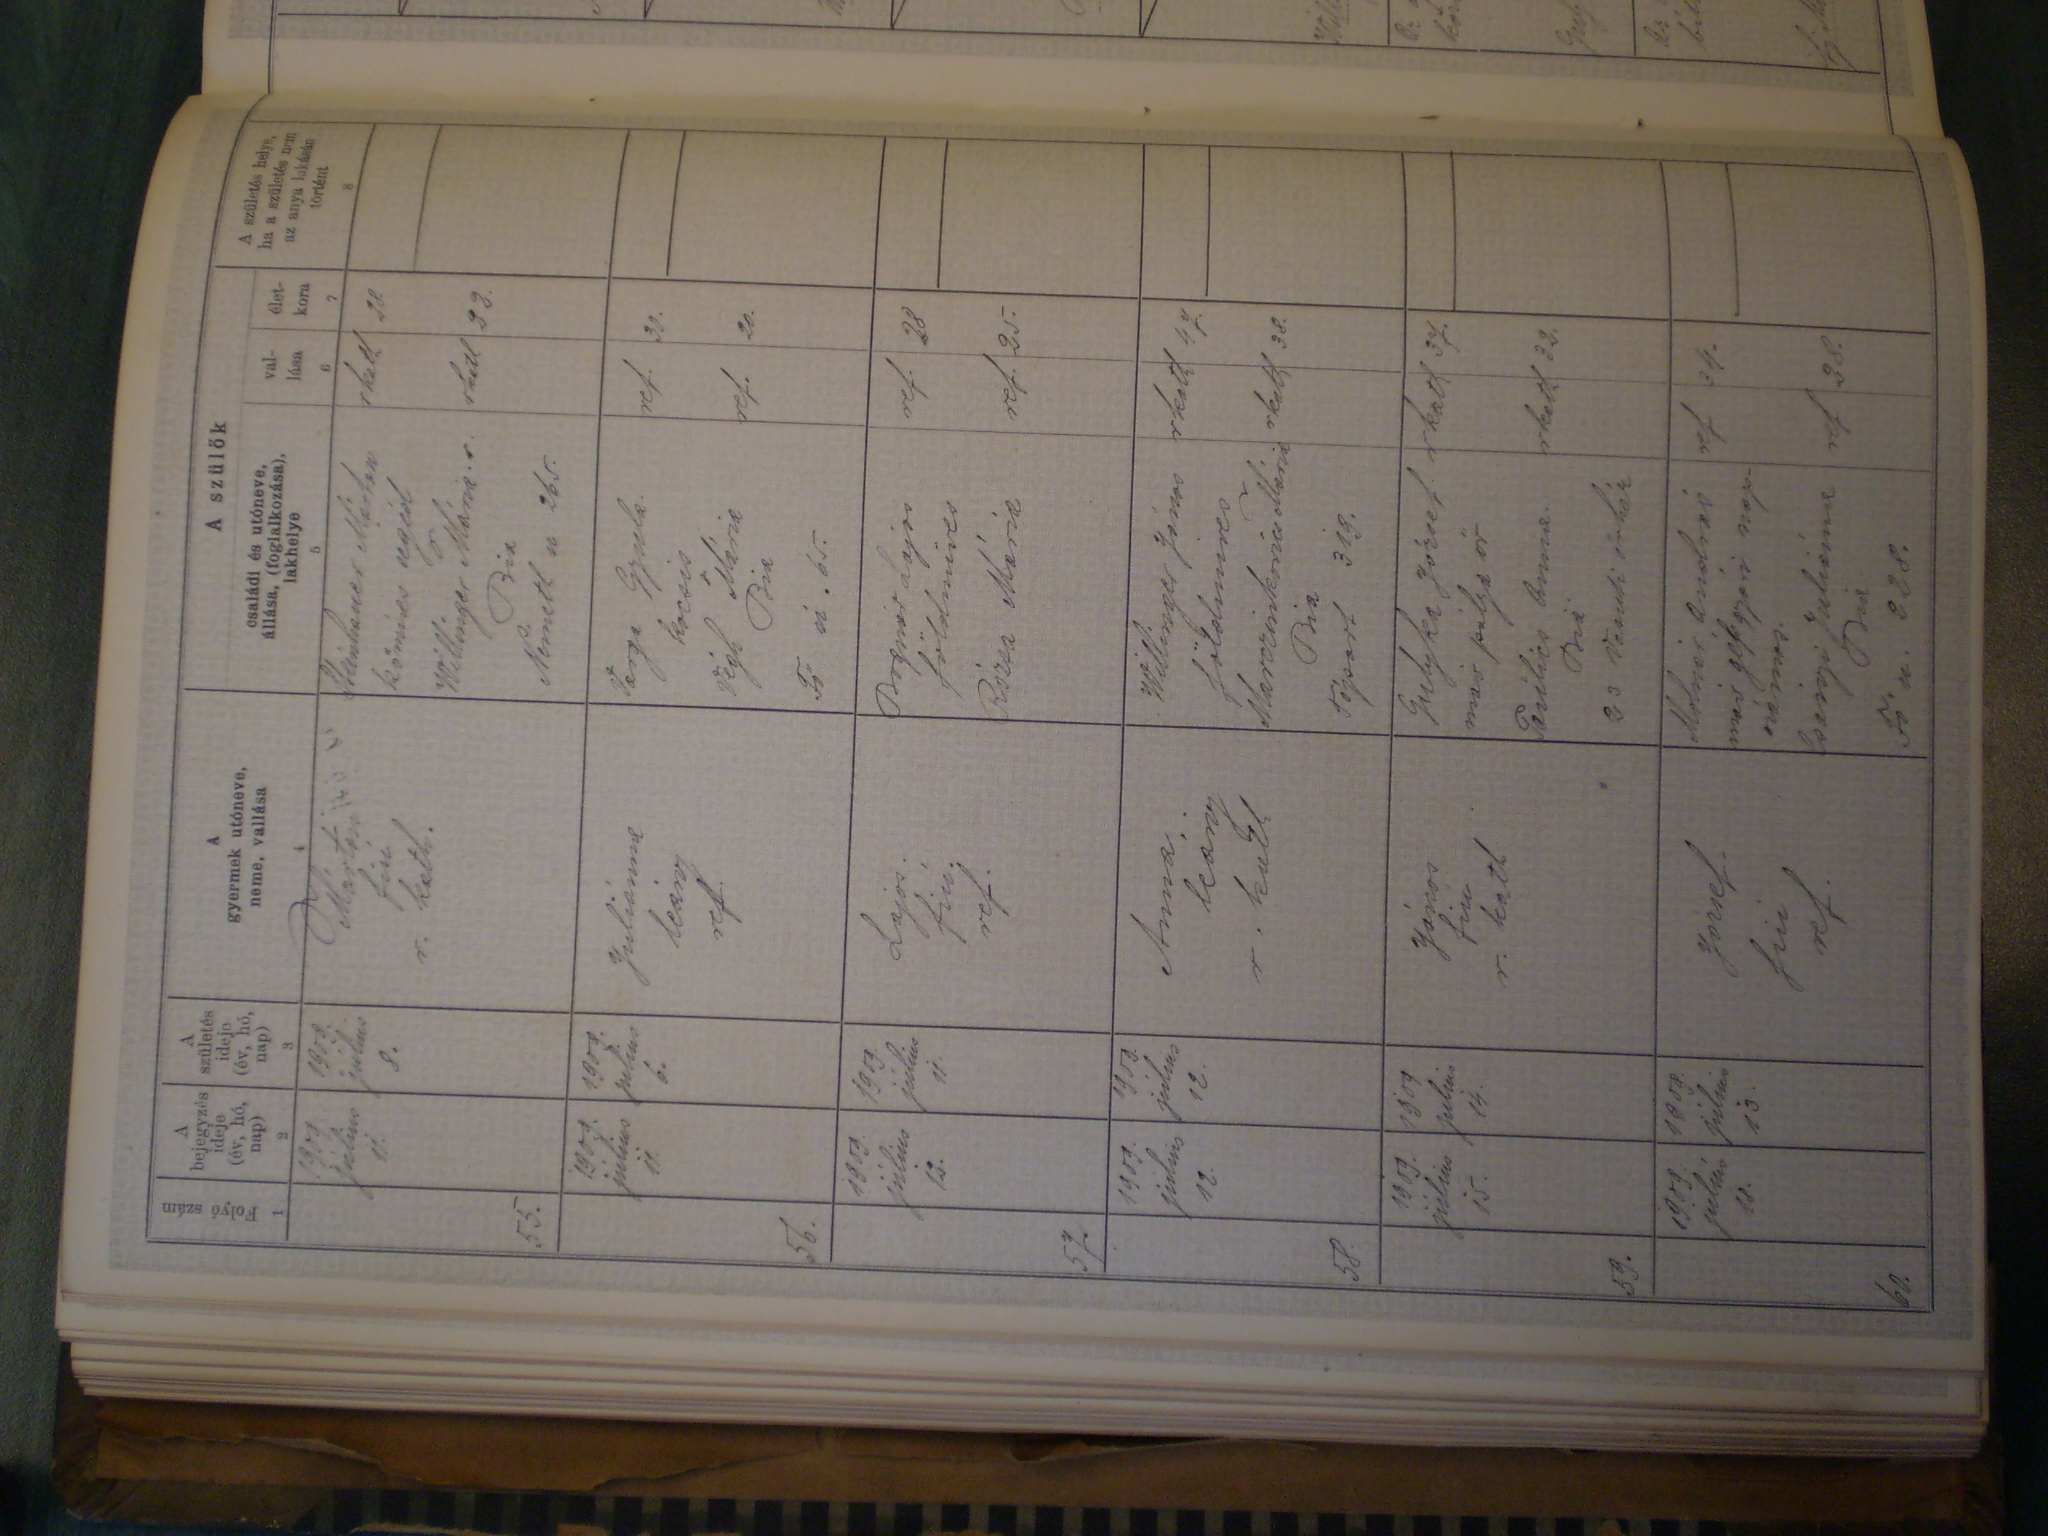 Folyó szám
A bejegyzés ideje (év, hó, nap)
A születés ideje (év, hó, nap)
A gyermek utóneve, neme, vallása
A szülők
családi és utóneve, állása, (foglalkozása), lakhelye
val-lása
élet-kora
A születés helye, ha a születés nem az anya lakásán történt
1
2
3
4
5
6
7
8
55.
1909.
július
11.
1909.
július
8.
Márton
fiú
r. kath.
Márton
kőműves segéd
Willinger Mária
Bia
Németh u 265.
rkath
28.
rkath
56.
1909.
július
11.
1909.
július
6.
Juliánna
leány
ref.
Varga Gyula
kocsis
Végh Mária
Bia
Fő u. 65.
ref.
ref.
20.
57.
1909.
július
1909.
július
11.
Lajos
fiú
ref.
Bognár Lajos
földműves
Rózsa Mária
ref.
28
ref.
25.
58.
1909.
július
12.
1909.
július
12.
Anna
leány
r. kath
Willinger János
földműves
Bia
319.
rkath
47.
rkath
38.
59.
1909.
július
15.
1909
július
14.
János
fiu
r. kath
Gulyka József
máv pálya őr
Paulics Anna.
Bia
23 Vasuti őrház
rkath
37.
rkath
32.
60.
1909.
július
18.
1909.
július
13.
József.
fiú
ref.
Molnár András
máv gépgyári nap-
számos.
Juliánna
Bia
Fő u. 228.
ref
31.
ref
28.